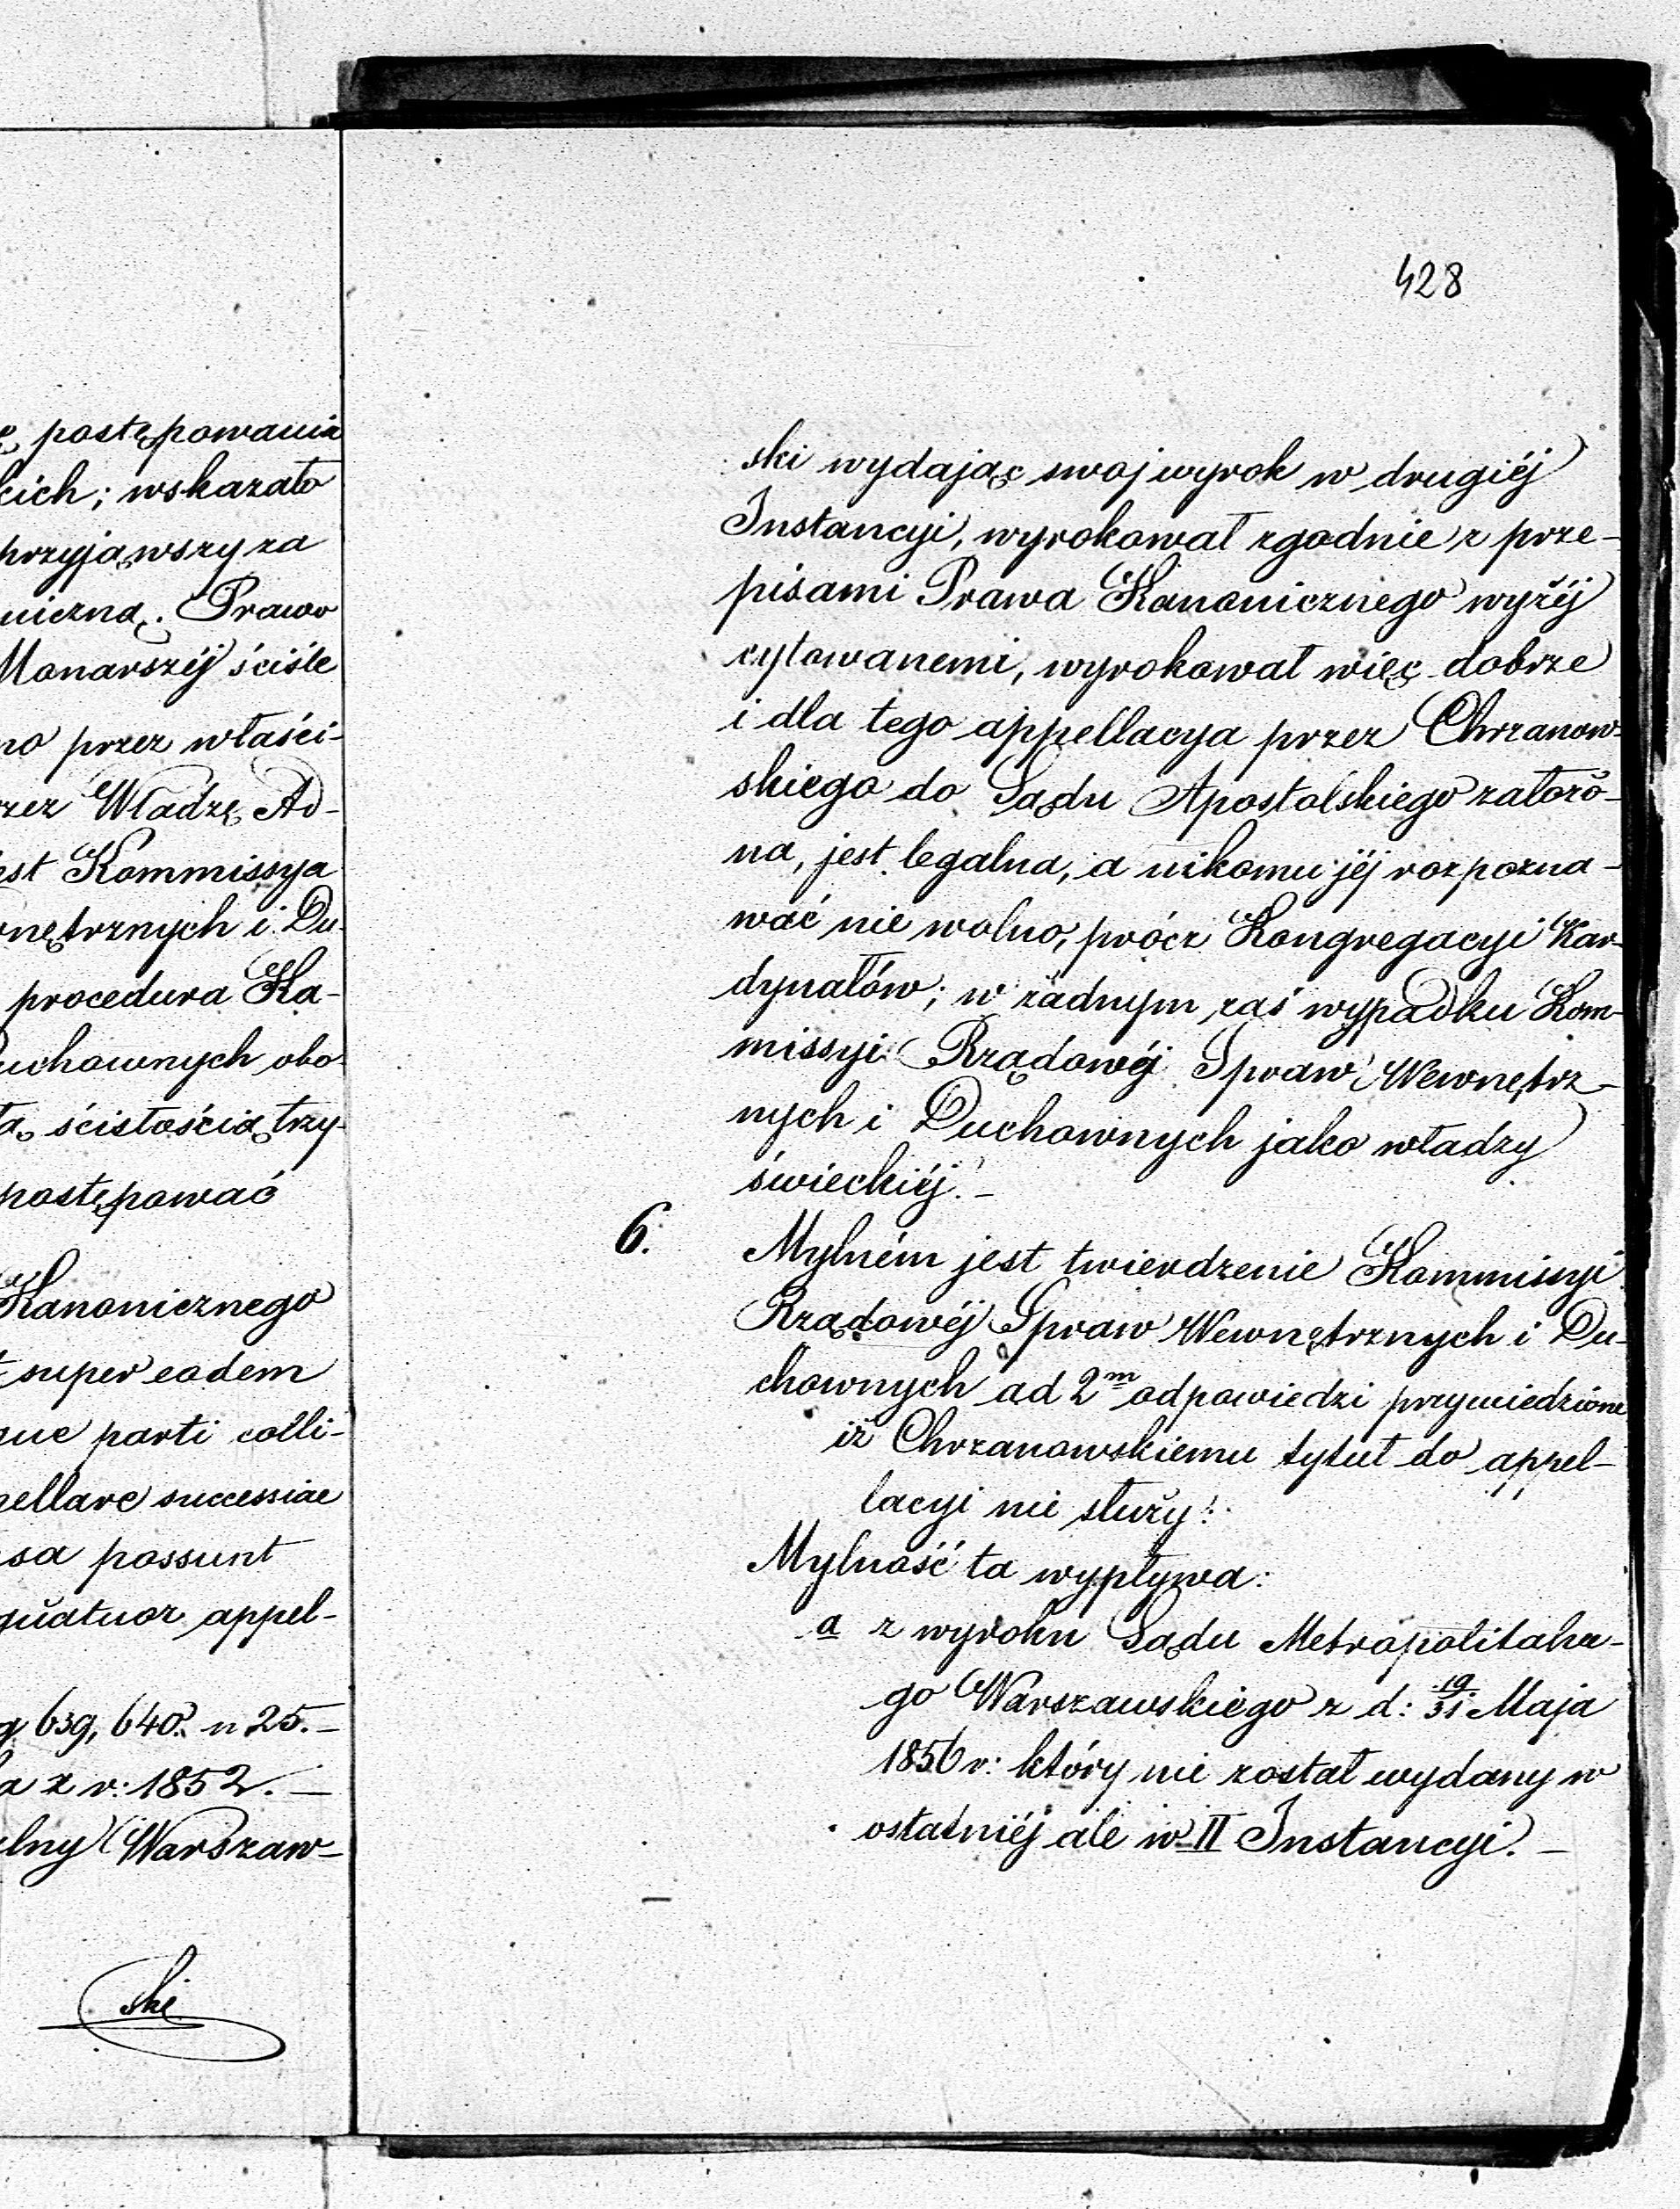 ę postępowania
kich; wskazało
przyjąwszy za
niczną. Prawo
Monarszéj ściśle
no przez właści-
rzez Władzę Ad-
est Kommissya
wnętrznych i Du-
procedura Ka-
uchownych obo-
tą ścisłością trzy-
postępować
Kanonicznego
t super eadem
que parti colli-
pellare successiae
sa possunt
quatuor appel-
g 639, 640. n 25. –
a z r: 1852. –
lny Warszaw-
ski
428
ski wydając swoj wyrok w drugiéj
Instancyi, wyrokował zgodnie z prze-
pisami Prawa Kanonicznego wyżéj
cytowanemi, wyrokował więc dobrze
i dla tego appellacya przez Chrzanow-
skiego do Sądu Apostolskiego założo-
na, jest legalna, a nikomu jéj rozpozna-
wać nie wolno, prócz Kongregacyi Kar-
dynałów; w żadnym zaś wypadku Kom-
missyi Rządowéj Spraw Wewnętrz-
nych i Duchownych jako władzy
świeckiéj. –
6. Mylném jest twierdzenie Kommissyi
Rządowéj Spraw Wewnętrznych i Du-
chownych ad 2m odpowiedzi przywiedzione
iż Chrzanowskiemu tytuł do appel-
lacyi nie służy!
Mylność ta wypływa:
a z wyroku Sądu Metropolitalne-
go Warszawskiego z d: 19/31 Maja
1856 r: który nie został wydany w
ostatniéj ale w II Instancyi. –